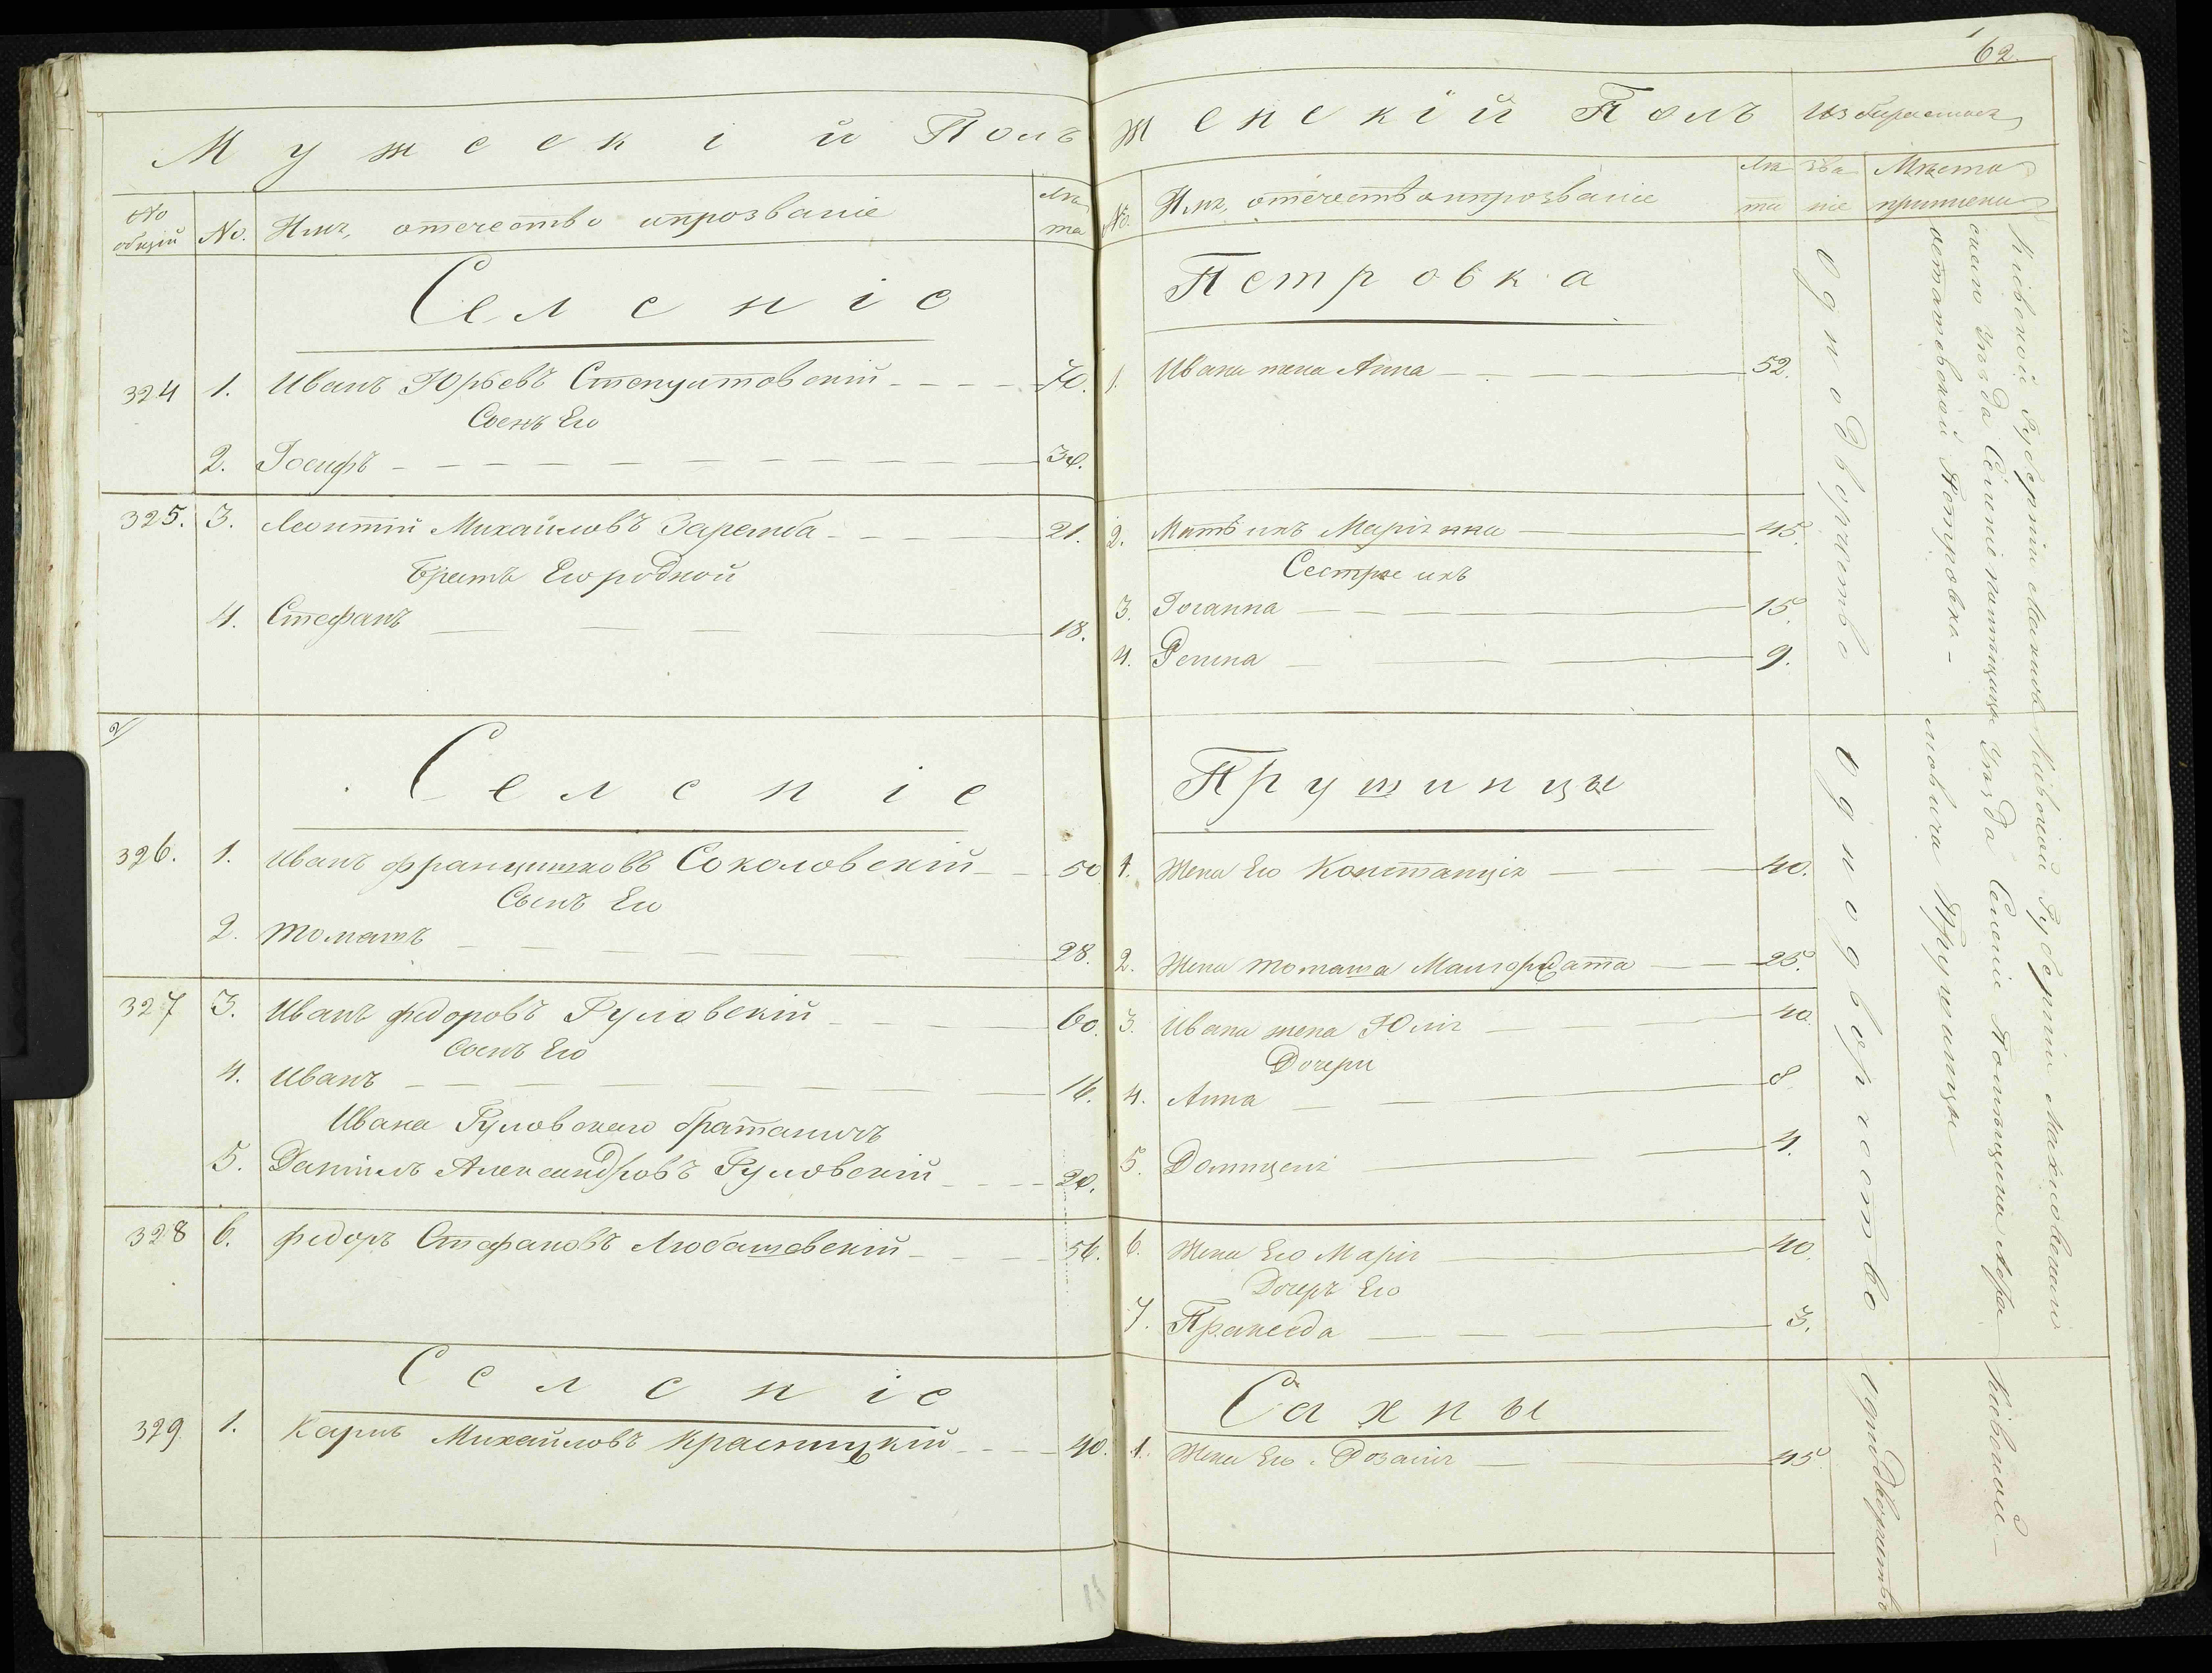 62.
Мужескій Полъ
Женскій Полъ
No общій
No.
Имя, отечество ипрозваніе
Лѣта
No.
Имя, отечество ипрозваніе
Лѣта
Званіе
Мѣста
Селеніе
Петровка
324 1. Иванъ Юрьевъ
70.
1. Ивана жена Анна 52.
Сынъ Его
2. Іосифъ 30.
325. 3. Леонтій Михайловъ Заремба 21.
2. Мать ихъ Маріянна 45.
Братъ Его родной
Сестры ихъ
4. Стефанъ 18.
3. Іоганна 15.
4. 9.
Однодворство
Кіевской Губерніи
Уезда Селеніе
Петровка
Селеніе
Прушинцы
326. 1. Иванъ Францишковъ Соколовскій 50
1. Жена Его Констанція 40.
Сынъ Его
2. Томашъ 28.
2. Жена Томаша 25.
327 3. Иванъ Федоровъ Гуловскій 60.
3. Ивана жена Юлія 40.
Сынъ Его
Дочери
4. Иванъ 16.
4. Анна 8.
Ивана Гуловскаго братаничъ
5. Даніилъ Александровъ Гуловскій 20.
5. 4.
328 6. Федоръ Стефановъ Любашевскій 56.
6. Жена Его Марія 40.
Дочерь Его
7. Пракседа 3.
Однодворство
Кіевской Губерніи
Уезда Селеніе
Прушинцы
Селеніе
Сахны
329. 1. Карпъ Михайловъ Красницкій 40.
1. Жена Его Розалія 45.
Однодворство
Кіевской